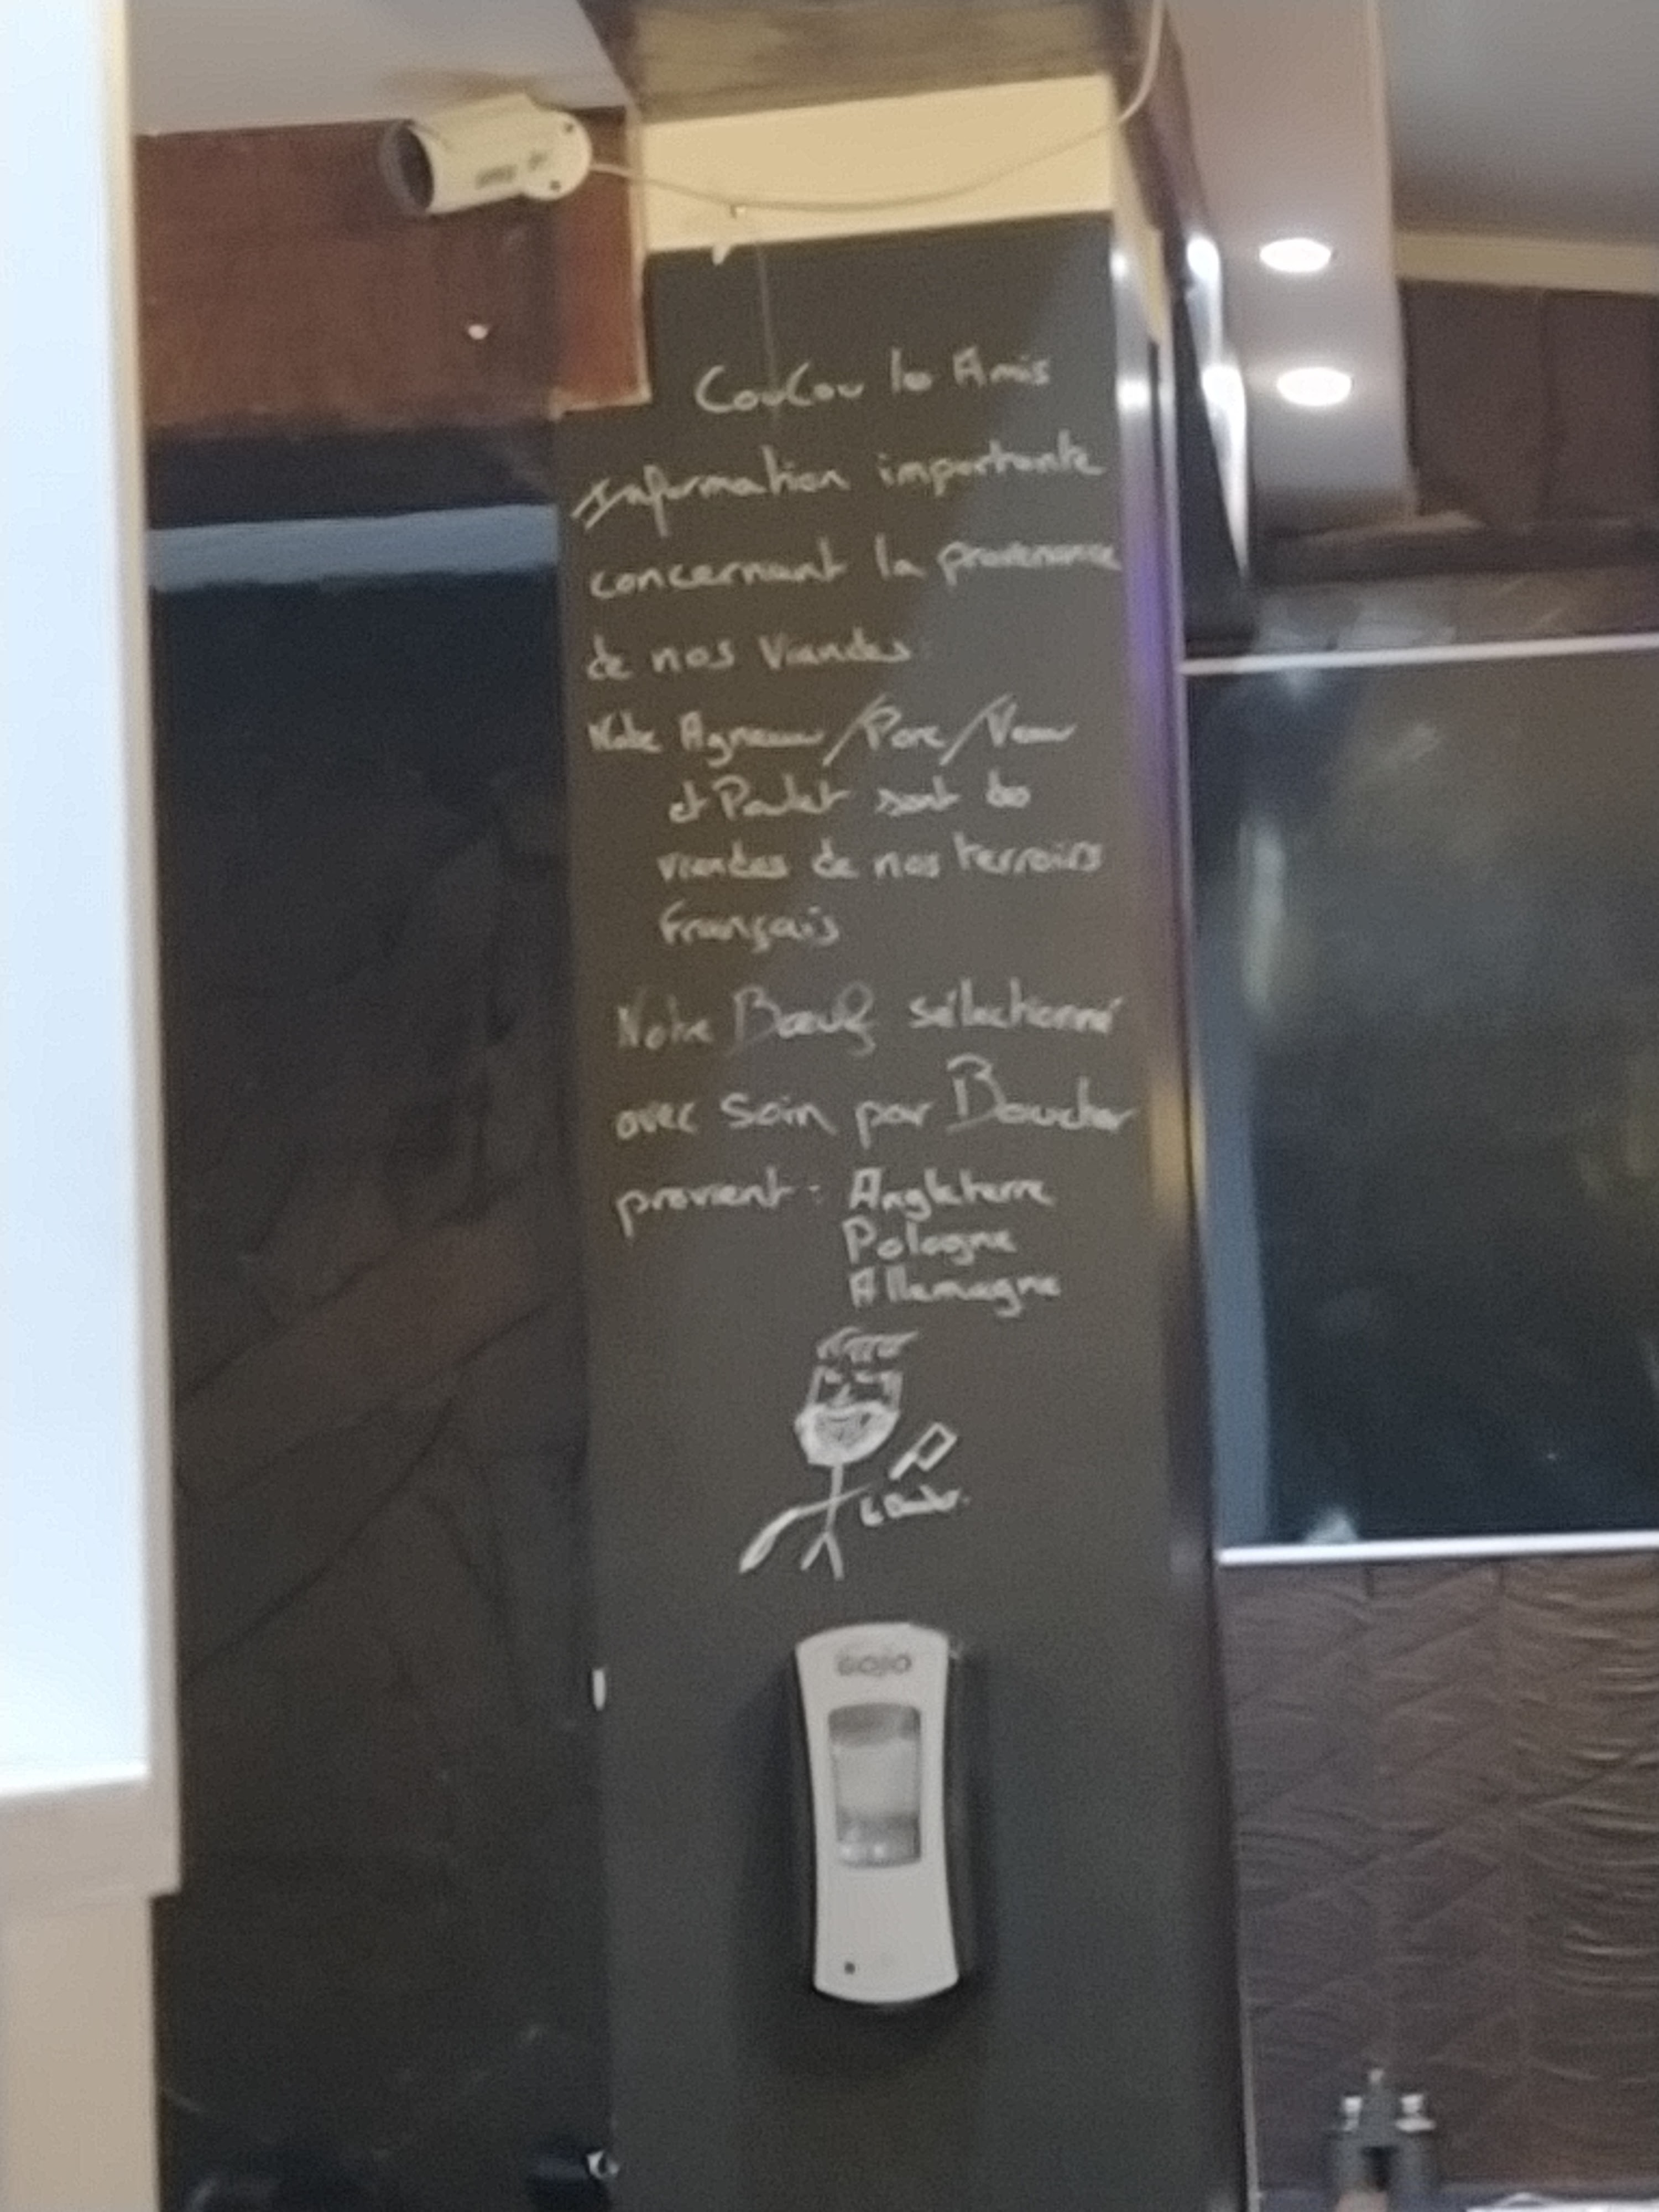 CouCou les Amis
Information importante
concernant la provenance
de nos Viandes:
Notre Agneau/Porc/Veau
et Poulet sont des
viandes de nos terroirs
Français
Notre Bœuf sélectionné
avec soin par Boucher
provient: Angleterre
Pologne
Allemagne
GOJO